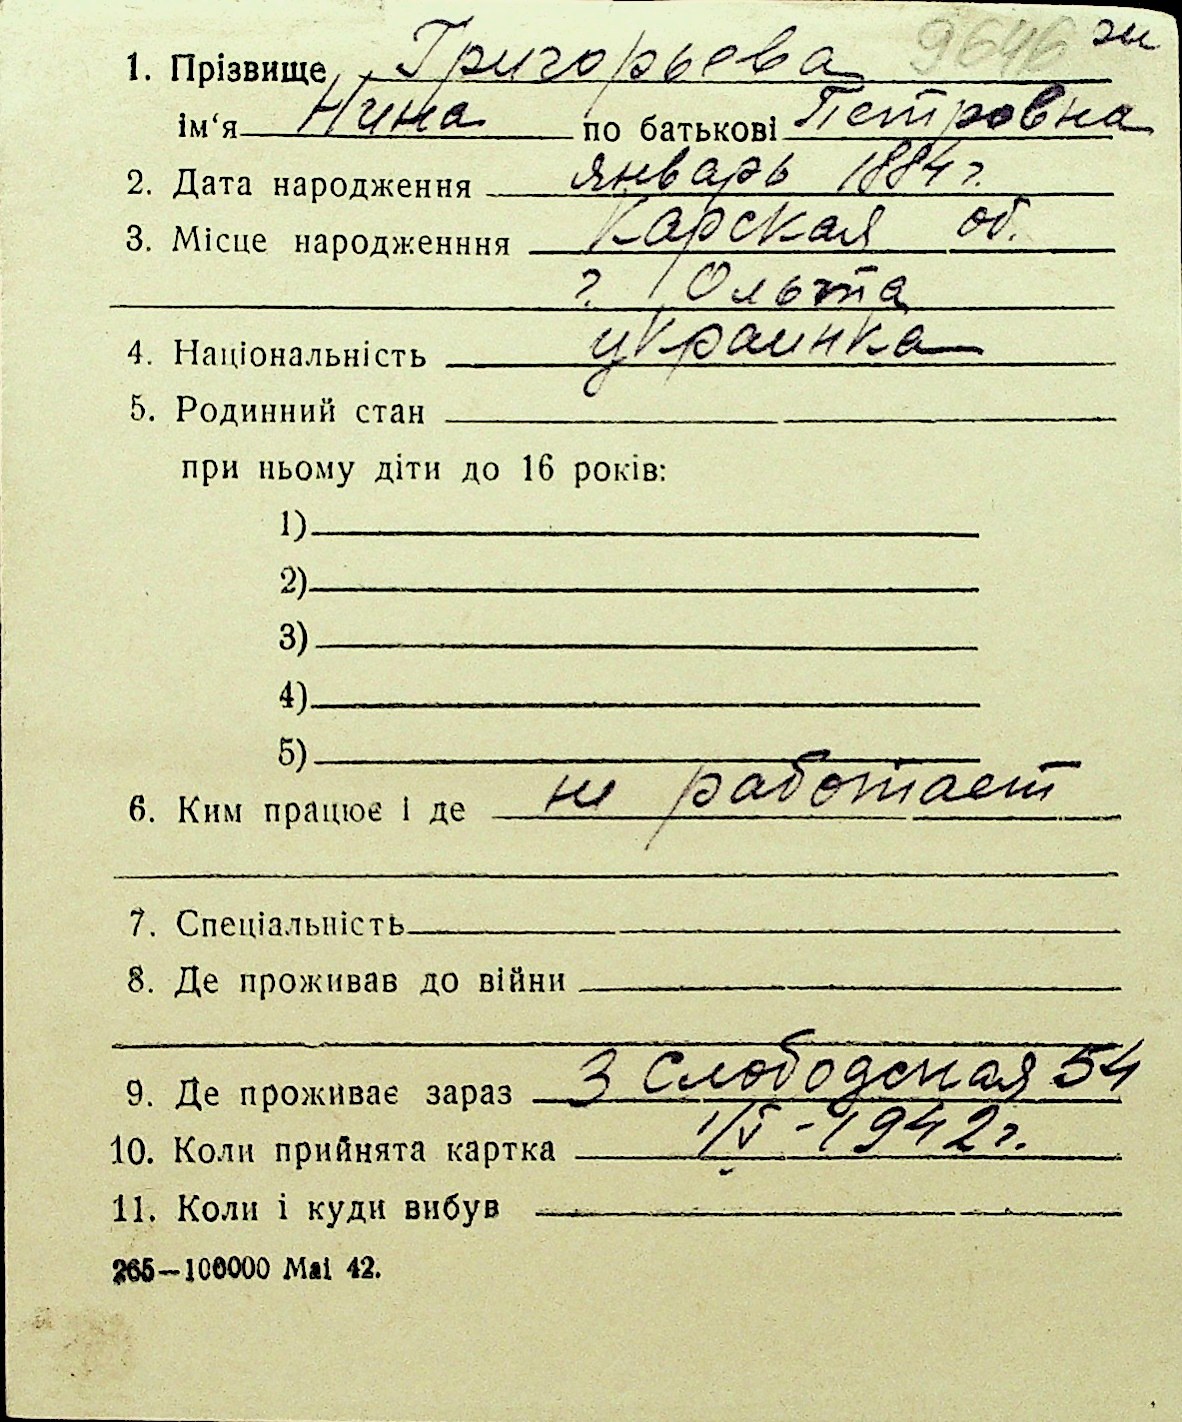 9646 зи
1. Прізвище Григорьева
ім‘я Нина по батькові Петровна
2. Дата народження январь 1884 г.
3. Місце народженння Карская об.
г. Ольта
4. Національність украинка
5. Родинний стан
при ньому діти до 16 років:
1)
2)
3)
4)
5)
6. Ким працює і де не работает
7. Спеціальність
8. Де проживав до війни
9. Де проживає зараз 3 Слободская 54
10. Коли прийнята картка 1/V - 1942 г.
11. Коли і куди вибув
265—100000 Mai 42.